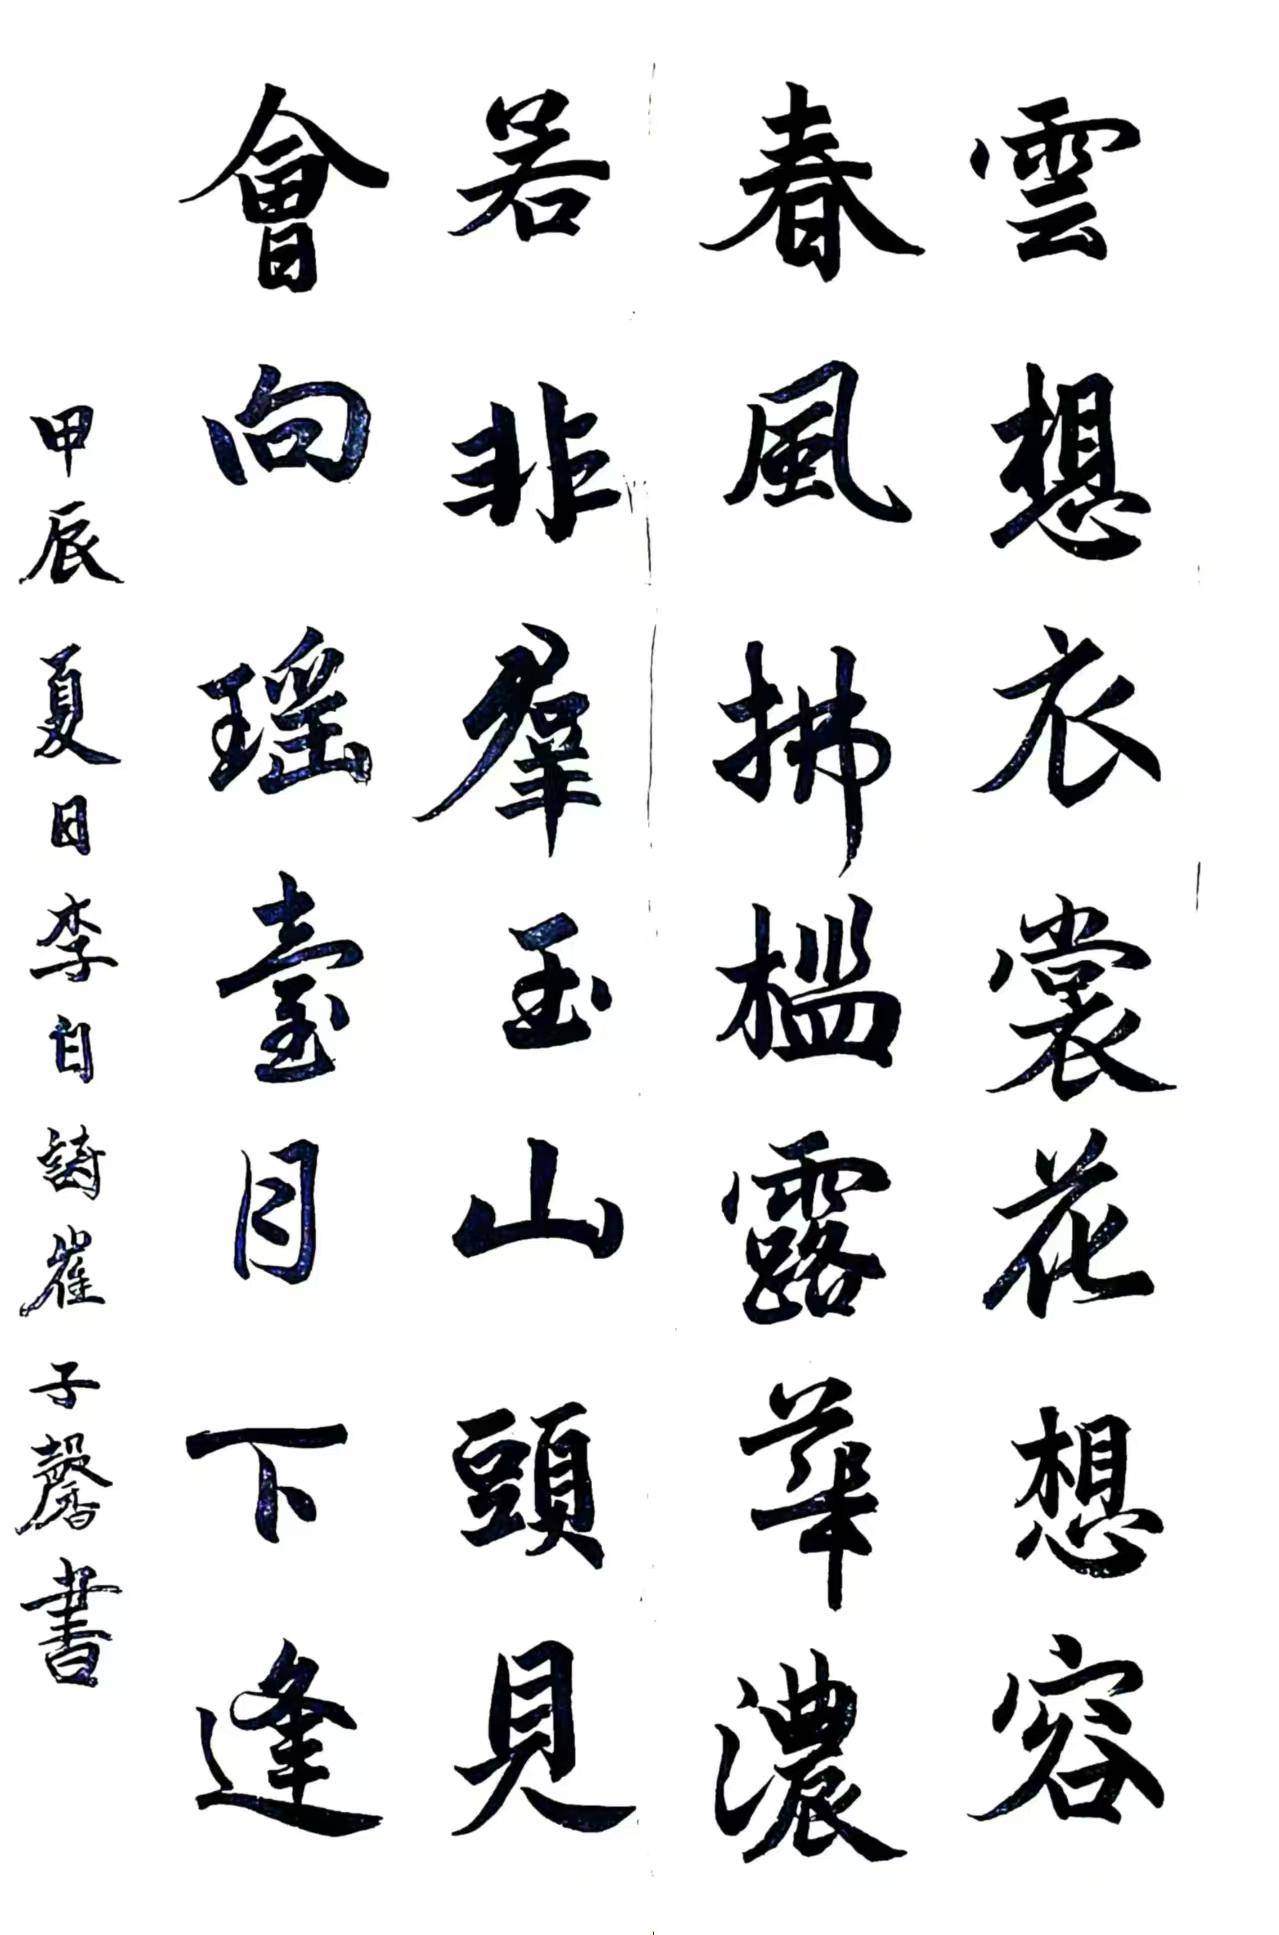 雲想衣裳花想容
春風拂檻露華濃
若非羣玉山頭見
會向瑶臺月下逢
甲辰夏日李白詩崔子馨書